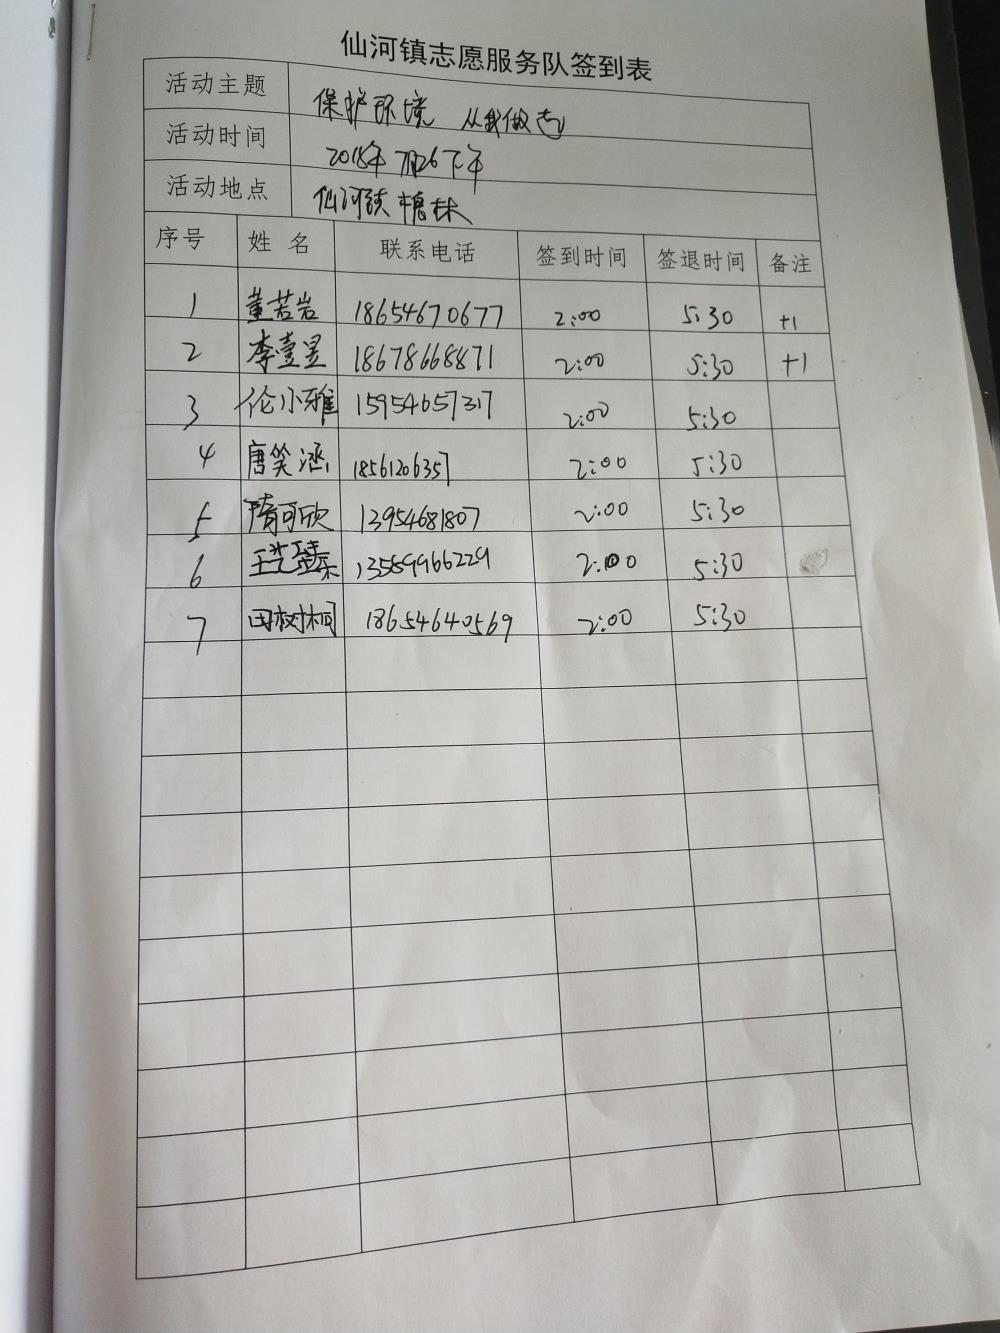 仙河镇志愿服务队签到表
活动主题 保护环境 从我做起
活动时间 2018年7月26下午
活动地点 仙河镇 槐林
序号 姓名 联系电话 签到时间 签退时间 备注
1 董若岩 18654670677 2:00 5:30 +1
2 李壹昱 18678668871 2:00 5:30 +1
3 伦小雅 15954657317 2:00 5:30
4 唐笑涵 18561206357 2:00 5:30
5 隋可欣 13954681807 2:00 5:30
6 王艺臻 13589966229 2:00 5:30
7 田树桐 18654640569 2:00 5:30